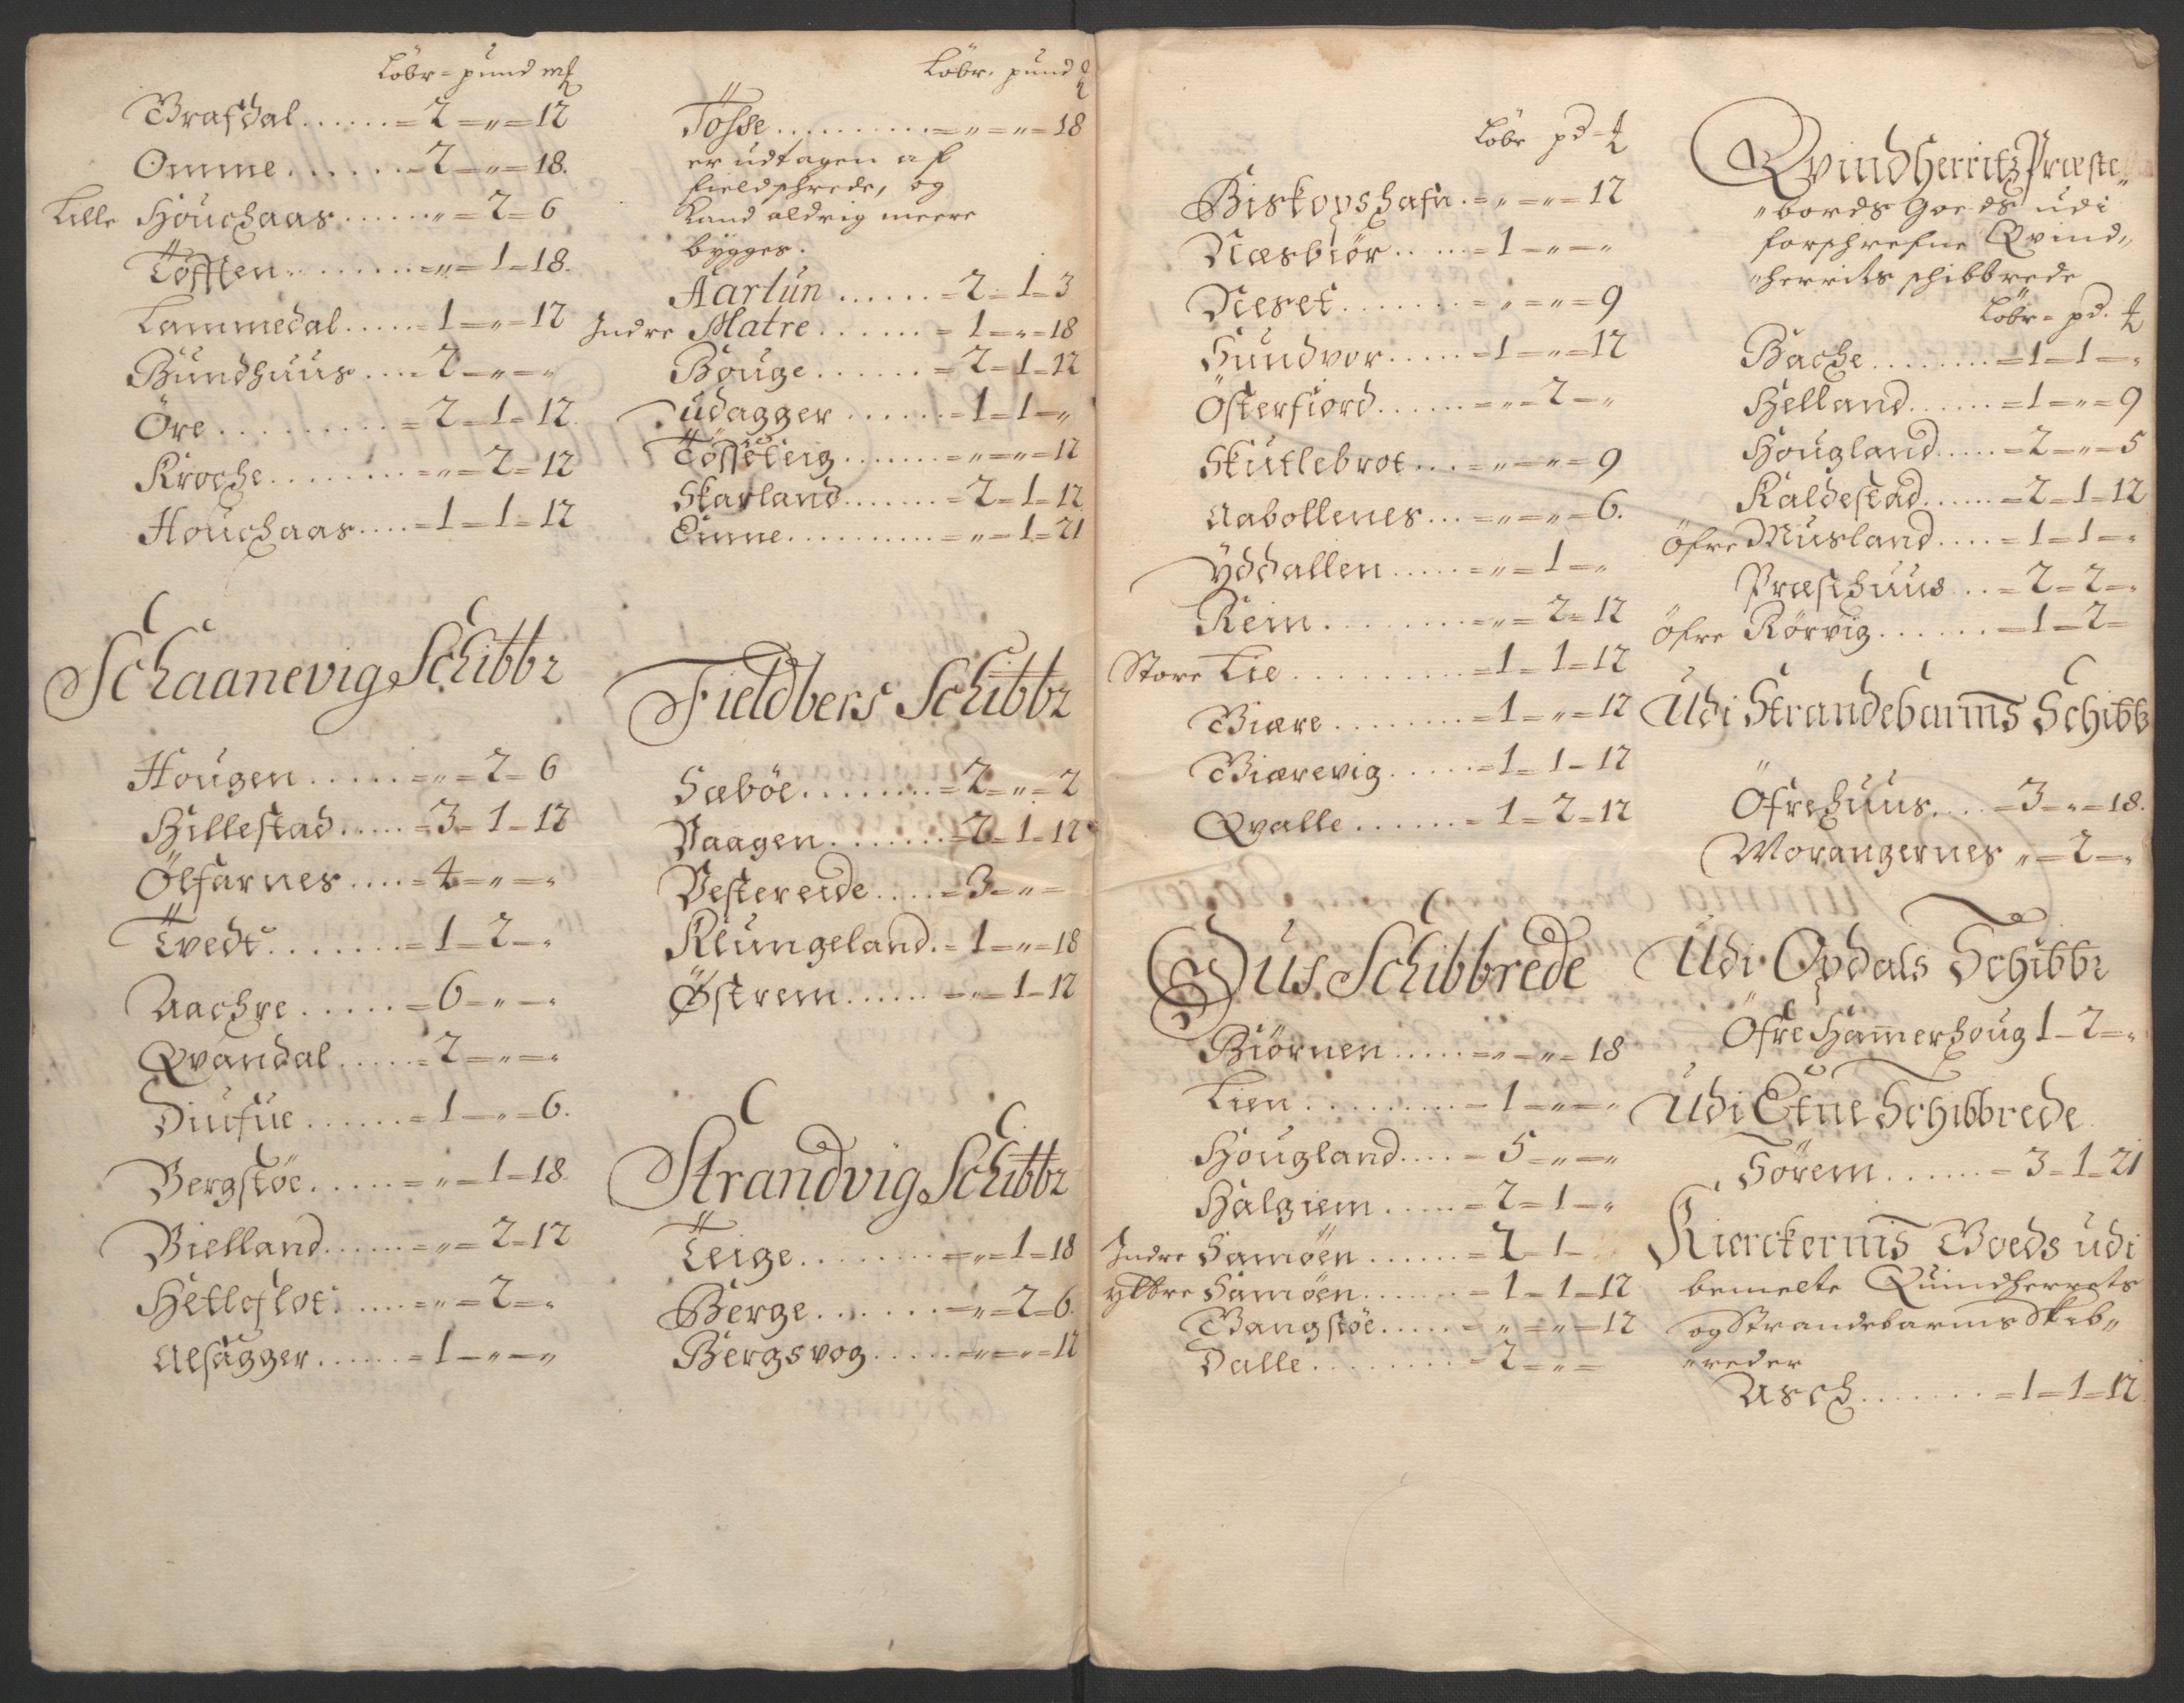 Löbr = pund mk
Brafdal ...... = 2 = „ = 12
Omme ...... = 2 = „ = 18.
Lille Houchaas ...... „ = 2 = 6
Tofften ...... = „ = 1 = 18.
Lammedal ..... = 1 = „ = 12
Bundhuus .... = 2 = „ = „
Öre ......... = 2 = 1 = 12.
Kroche ....... = „ = 2 = 12
Houchaas .... = 1 = 1 = 12
Schaanevig Schibbr
Hougen ..... = „ = 2 = 6
Hillestad ..... = 3 = 1 = 12
Ölfarnes .... = 4 = „ = „
Tvedt ....... = 1 = 2 = „
Aachre ..... = 6 = „ = „
Qvandal ..... = 2 = „ = „
Diufue ...... = 1 = „ = 6.
Bergstöe ..... = „ = 1 = 18.
Bielland ...... = „ = 2 = 12
Hetleflot ..... = „ = 2 = „
Alsagger ...... = 1 = „ = „
Löbr. pund
Tösse .......... = „ = „ = 18
er udtagen af
fieldschrede, og
kand aldrig meere
bygges.
Aarlun ...... = 2 = 1 = 3
Indre Matre ....... = 1 = „ = 18
Bouge ...... = 2 = 1 = 12
Udagger ...... = 1 = 1 = „
Tösseteig ....... = „ = „ = 12
Skarland ....... = 2 = 1 = 12
Emne .......... = „ = 1 = 21
Fieldbers Schibbr
Sæböe ........ = 2 = „ = 2
Vaagen ....... = 2 = 1 = 12
Vestereide .... = 3 = „ =
Klungeland . = 1 = „ = 18
Östrem ...... = „ = 1 = 12
Strandvig Schibbr
Teige ....... = „ = 1 = 18
Berge ...... = „ = 2 = 6.
Bergsvog ...... = „ = „ = 12
Löbr pd =
Biskopshafn . = „ = „ = 12
Næsbiör .. ... = 1 = „ = „
Neset ....... = „ = „ = 9
Sundvor ..... = 1 = „ = 12
Österfiord ...... = „ = 2 = „
Skutlebrot ... = „ = „ = 9
Aabollenes ... = „ = „ = 6.
Yddallen ..... = „ = 1 = „
Rem ........ = „ = 2 = 12
Store Lie .......... = 1 = 1 = 12
Biære ........ = 1 = „ = 12
Biærevig ..... = 1 = 1 = 12
Qvalle ...... = 1 = 2 = 12
Sus Schibbrede
Biörnen ..... = „ = „ = 18
Lien ......... = 1 = „ = „
Hougland .... = 5 = „ = „
Halgiem ..... = 2 = 1 = „
Indre Samöen ...... = 2 = 1 =
Yttre Samöen ...... = 1 = 1 = 12
Vangstöe ..... = „ = „ = 12
Dalle ........ = 2 = „ =
Qvindherritz Præste„
„bords Goeds udi
forschrefne Qvind„
„herrits schibbrede
Löbr = pd.
Bache ........ = 1 = 1 = „
Helland ...... = 1 = „ = 9
Hougland ..... = 2 = „ = 5
Kaldestad ..... = 2 = 1 = 12
Öfre Musland .... = 1 = 1 = „
Præsthuus .. = 2 = 2 = „
Öfre Rörvig ...... = 1 = 2 =
Udi Strandebarms Schibb
Öfrehuus .... = 3 = „ = 18.
Worangernes „ = 2 = „
Udi Opdals Schibbr
Öfre Hamerhoug 1 = 2 = „
Udi Etne Schibbrede
Sörem ...... = 3 = 1 = 21
Kierckernis Goeds udi
bemelte Quindherrets
og Strandebarms Skib„
„reder
Asch ....... = 1 = 1 = 12